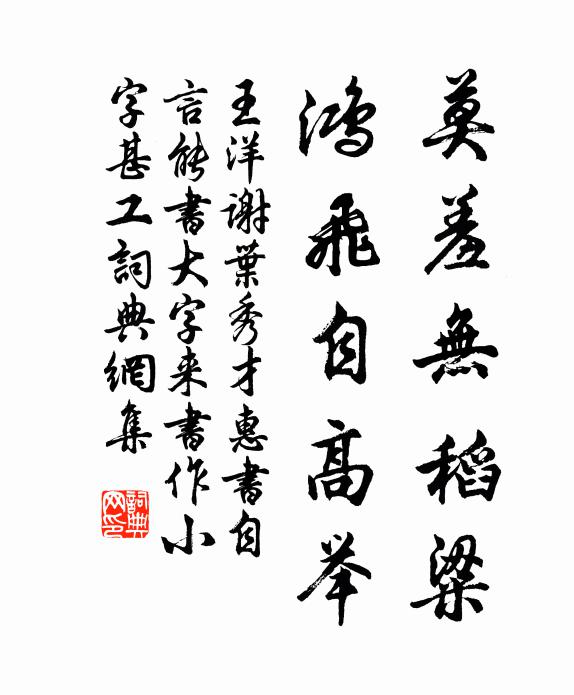 莫羞無稻粱
鸿飛自高举
王洋謝葉秀才惠書自
言能書大字来書作小
字甚工詞典網集
詞典
网印